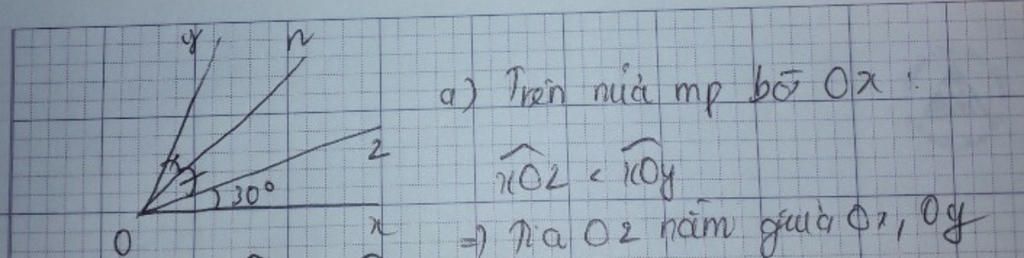 y n
z
30°
O x
a) Trên nửa mp bờ Ox :
xOz < xOy
=> Tia Oz nằm giữa Ox, Oy